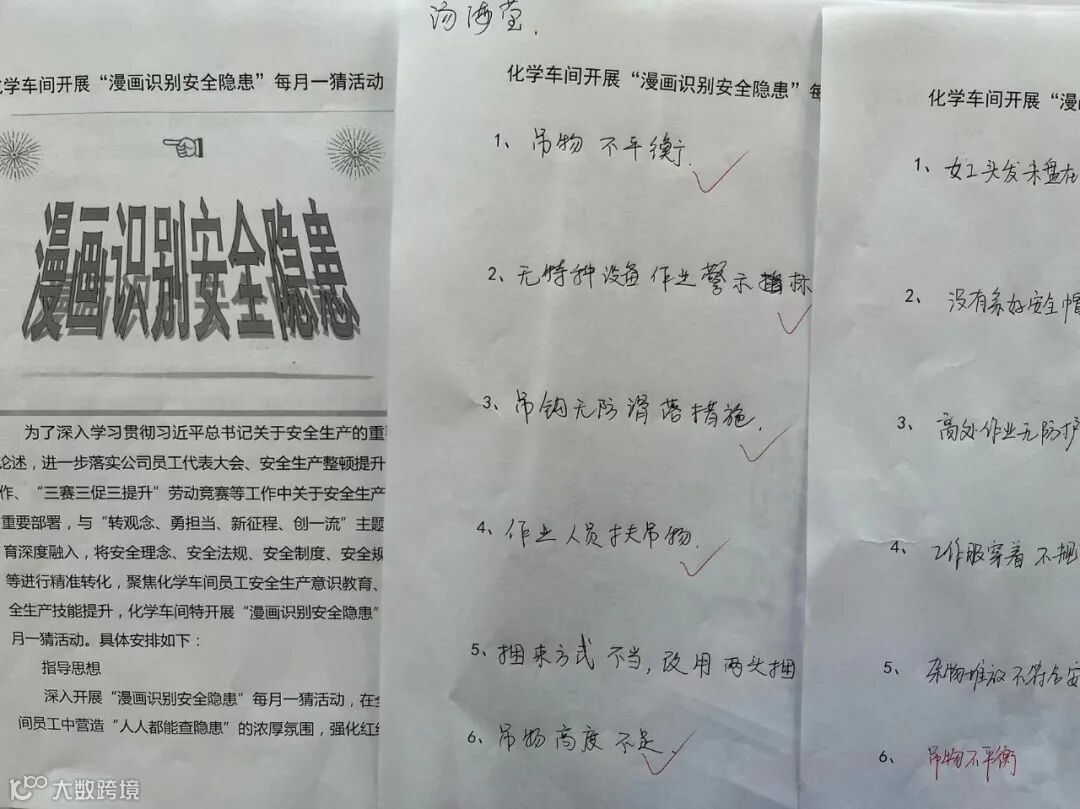 化学车间开展“漫画识别安全隐患”每月一猜活动
漫画识别安全隐患
为了深入学习贯彻习近平总书记关于安全生产的重要
论述，进一步落实公司员工代表大会、安全生产整顿提升
作、“三赛三促三提升”劳动竞赛等工作中关于安全生产
重要部署，与“转观念、勇担当、新征程、创一流”主题
育深度融入，将安全理念、安全法规、安全制度、安全规
等进行精准转化，聚焦化学车间员工安全生产意识教育、
全生产技能提升，化学车间特开展“漫画识别安全隐患”
月一猜活动。具体安排如下：
指导思想
深入开展“漫画识别安全隐患”每月一猜活动，在全
间员工中营造“人人都能查隐患”的浓厚氛围，强化红线
汤海莹.
化学车间开展“漫画识别安全隐患”每
1、吊物不平衡.
2、无特种设备作业警示指标
3、吊钩无防滑落措施.
4、作业人员扶吊物.
5、捆束方式不当，改用两头捆
6、吊物高度不足.
化学车间开展“漫
1、女工头发未盘在
2、没有系好安全帽
3、高处作业无防护
4、工作服穿着不规
5、杂物堆放不符合安
6、吊物不平衡
大数跨境